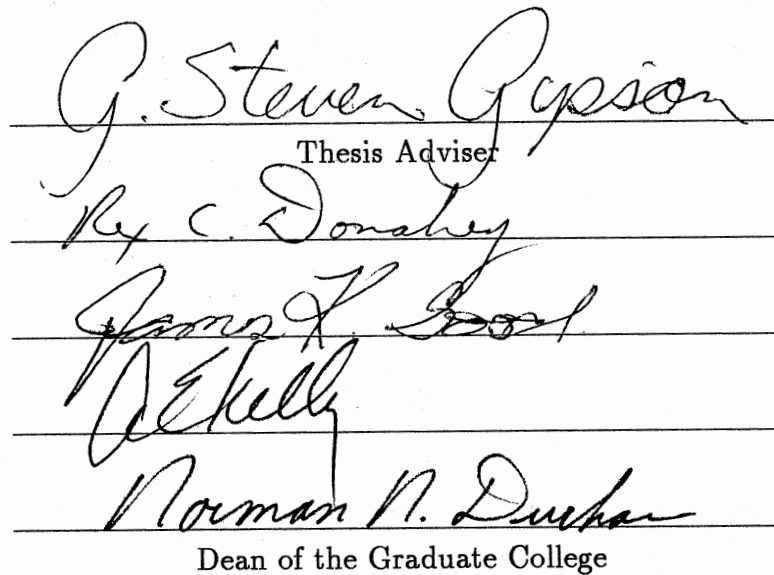 G. Steven Gipson
Thesis Adviser
Rex C. Donahey
James K. Good
AEKelly
Norman N. Durham
Dean of the Graduate College